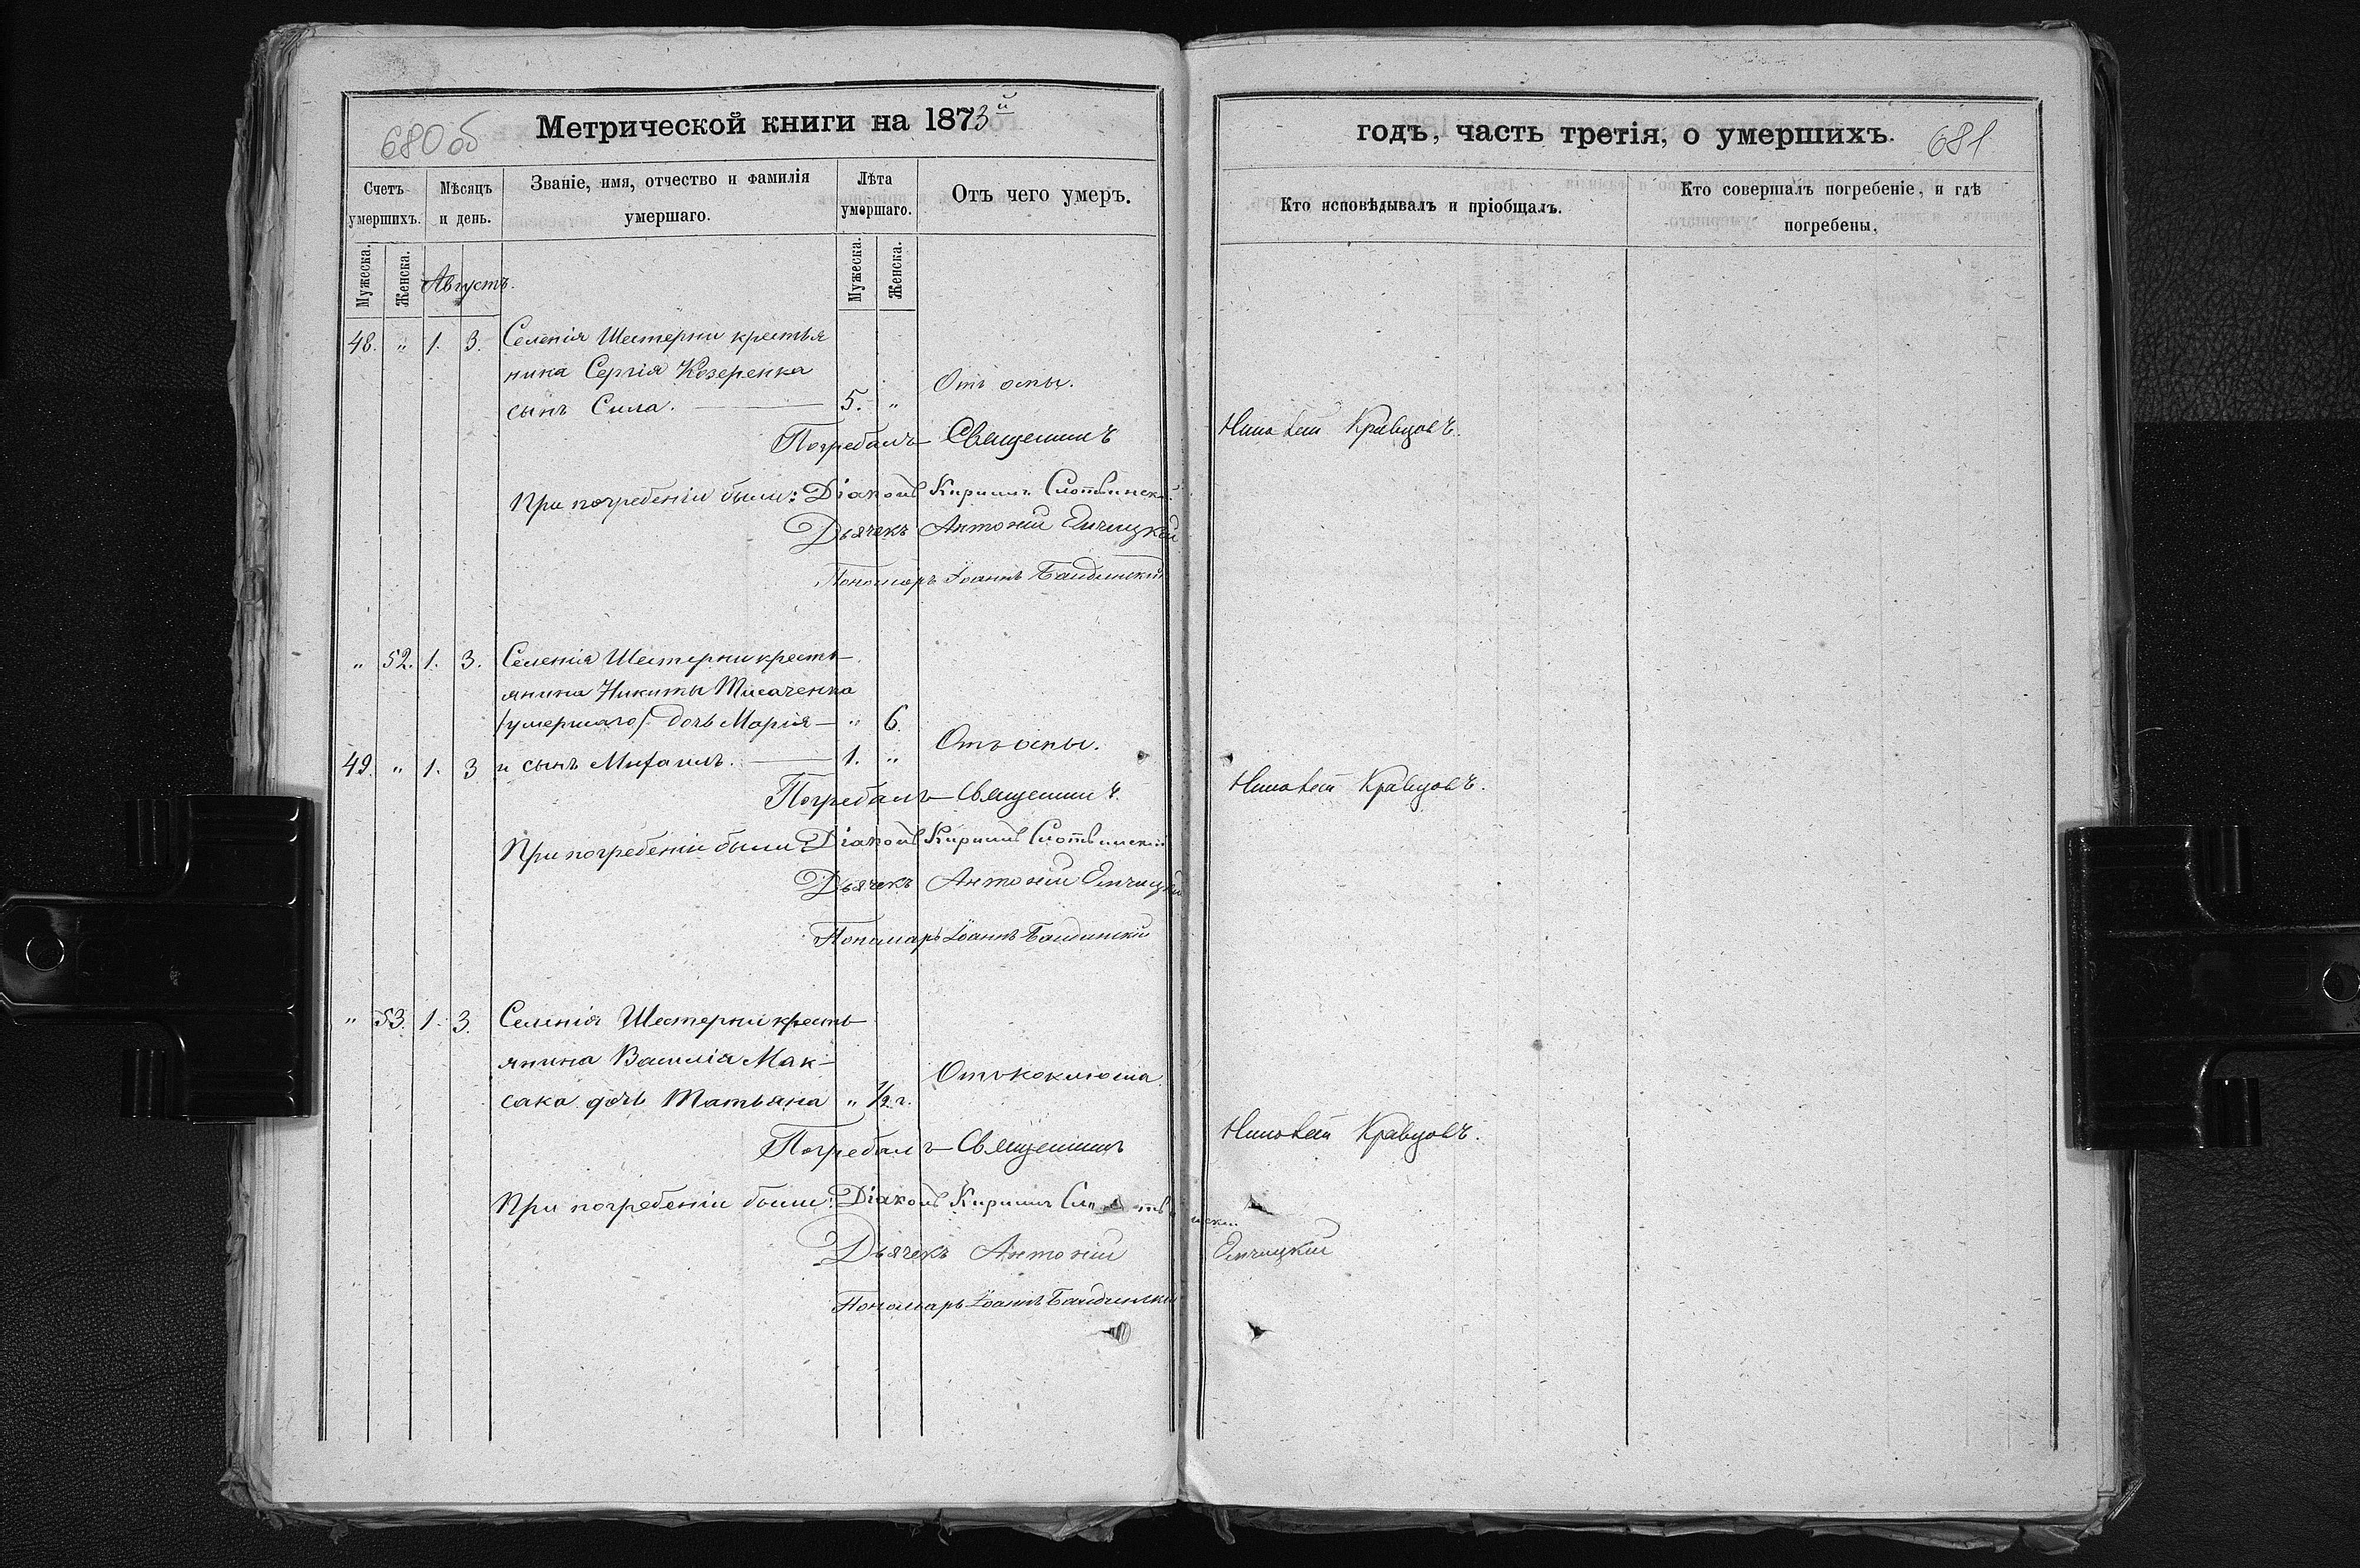 680об
Метрической книги на 1873й
Счетъ умершихъ.
Мѣсяцъ и день.
Званіе, имя, отчество и фамилія умершаго.
Лѣта умершаго.
Отъ чего умеръ.
Мужеска. Женска.
Августъ.
Мужеска. Женска.
48. " 1. 3. Селенія Шестерни крестья
нина Сергія Козеренка
сынъ Сила. 5. " Отъ оспы.
Погребалъ Священникъ
При погребеніи были: Діаконъ Кириллъ Слотвинскій
Дьячекъ Антоній
Пономарь Іоаннъ
" 52. 1. 3. Селенія Шестерни кресть
янина Никиты
/умершаго/ дочь Марія " 6.
Отъ оспы.
49. " 1. 3 и сынъ Михаилъ. 1. "
Погребалъ Священникъ
При погребеніи были: Діаконъ Кириллъ Слотвинскій
Дьячекъ Антоній
Пономарь Іоаннъ
" 53. 1. 3. Селенія Шестерни кресть
янина Василія Мак-
Отъ коклюша
сака дочь Татьяна " 1/2 г.
Погребалъ Священникъ
При погребеніи были: Діаконъ Кириллъ Слотвинскій
Дьячекъ Антоній
Пономарь Іоаннъ
годъ, часть третія, о умершихъ.
681
Кто исповѣдывалъ и пріобщалъ.
Кто совершалъ погребеніе, и гдѣ
погребены,
Кравцовъ.
Кравцовъ.
Кравцовъ.